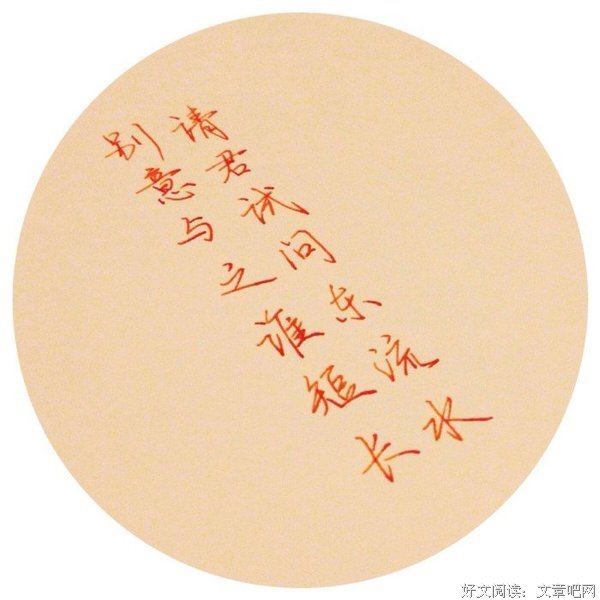 请君试问东流水
别意与之谁短长
好文阅读：文章吧网